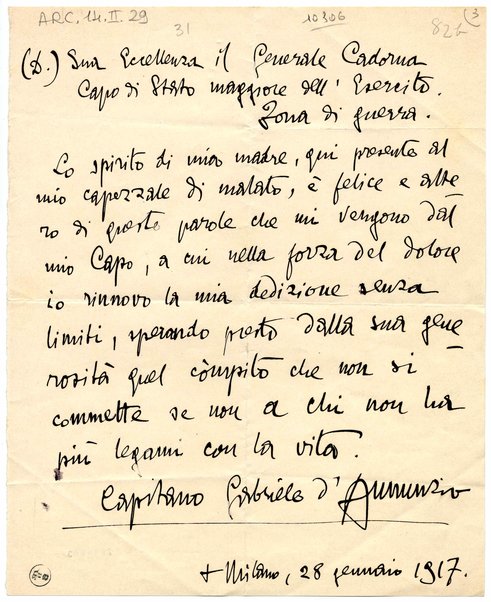 ARC. 14. II. 29
31
10306
826
3
(D.) Sua Eccellenza il Generale Cadorna
Capo di Stato maggiore dell' Esercito.
Zona di guerra.
Lo spirito di mia madre, qui presente al
mio capezzale di malato, è felice e alte
ro di queste parole che mi vengono dal
mio Capo, a cui nella forza del dolore
io rinnovo la mia dedizione senza
limiti, sperando presto dalla sua gene
rosità quel còmpito che non si
commette se non a chi non ha
più legami con la vita.
Capitano Gabriele d'Annunzio
+ Milano, 28 gennaio 1917.